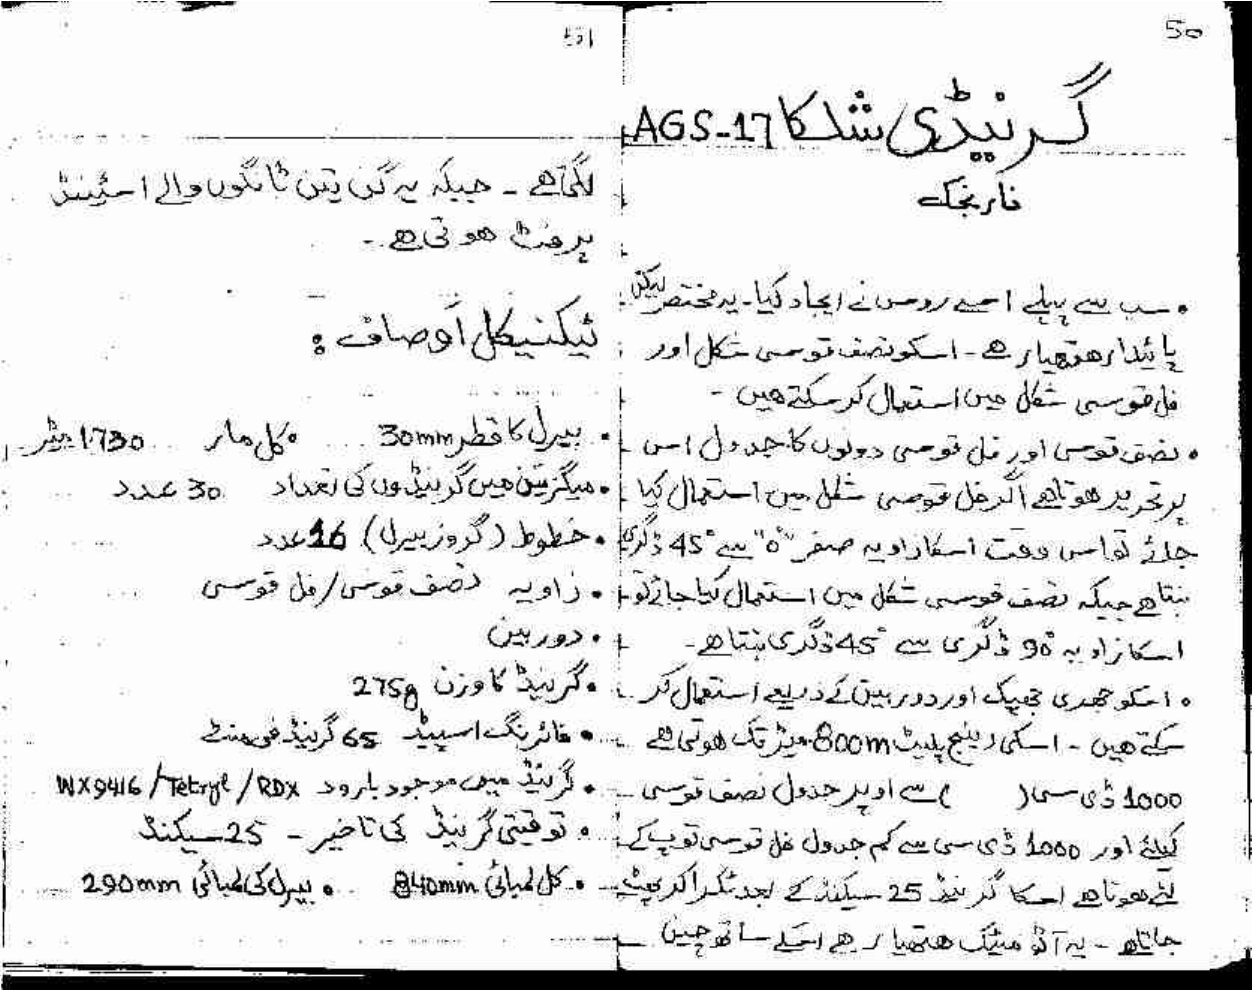 50
گرنیڈی شلکا AGS-17
فائر بجکے
• سب سے پہلے اسے روس نے ایجاد کیا۔ یہ مختصر لیکن
پائیدار ھتھیار ھے۔ اسکو نصف قوسی شکل اور
فل قوسی شکل میں استعمال کر سکتے ھیں۔
• نصف قوسی اور فل قوسی دونوں کا جدول اس
پر تحریر ھوتا ھے اگر فل قوسی شکل میں استعمال کیا
جائے تو اس وقت اسکا زاویہ صفر "0°" سے 45° ڈگری
بنتا ھے جبکہ نصف قوسی شکل میں استعمال کیا جائے تو
اسکا زاویہ 90° ڈگری سے 45° ڈگری بنتا ھے۔
• اسکو جھری اور دوربین کے ذریعے استعمال کر
سکتے ھیں۔ اسکی رینج پلیٹ 800m میٹر تک ھوتی ھے
1000 ڈی سی ( ) سے اوپر جدول نصف قوسی
کیلئے اور 1000 ڈی سی سے کم جدول فل قوسی توپ کے
لئے ھوتا ھے اسکا گرنیڈ 25 سیکنڈ کے بعد ٹکرا کر پھٹ
جاتا ھے۔ یہ آٹو میٹک ھتھیار ھے اسکے ساتھ چین
51
لگتی ھے۔ جبکہ یہ گن تین ٹانگوں والے اسٹینڈ
پر فٹ ھوتی ھے۔
ٹیکنیکل اوصاف :
• بیرل کا قطر 30mm • کل مار 1730 میٹر
• میگزین میں گرنیڈوں کی تعداد 30 عدد
• خطوط (گروز بیرل) 16 عدد
• زاویہ نصف قوسی/فل قوسی
• دوربین
• گرنیڈ کا وزن 275g
• فائرنگ اسپیڈ 65 گرنیڈ فی منٹ
• گرنیڈ میں موجود بارود WX9416/Tetryl/RDX
• توقیتی گرنیڈ کی تاخیر - 25 سیکنڈ
• کل لمبائی 840mm • بیرل کی لمبائی 290mm